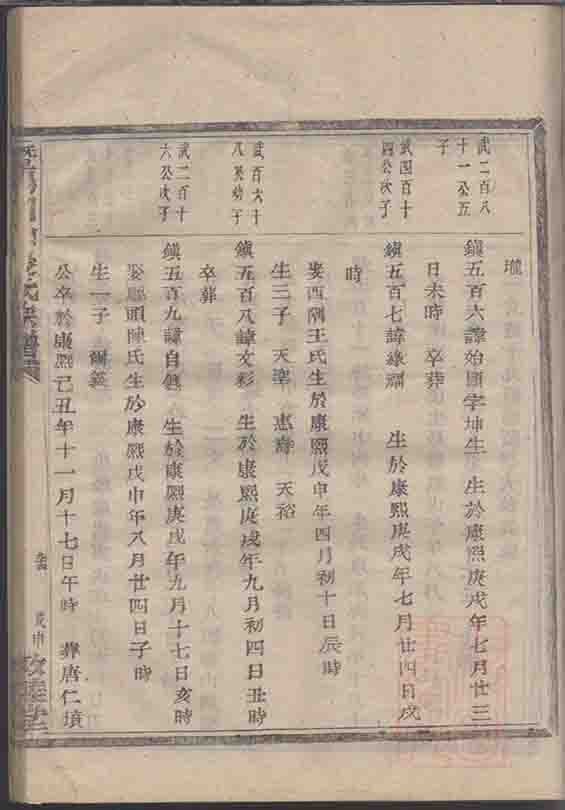 瓏
武二百八
十一公五
子
鎮五百六諱始國字坤生 生於康熙庚戌年七月廿三
日未時 卒葬
武四百十
四公次子
鎮五百七諱緣 生於康熙庚戌年七月廿四日戌
時
娶西剛王氏生於康熙戊申年四月初十日辰時
生三子 天 惠 天裕
武百六十
八 幼子
鎮五百八諱文彩 生於康熙庚戌年九月初四日丑時
卒葬
武二百十
六公次子
鎮五百九諱自 生於康熙庚戌年九月十七日亥時
娶 頭陳氏生於康熙戊申年八月廿四日子時
生一子
公卒於康熙己丑年十一月十七日午時 葬唐仁墳
戊申
敦睦堂